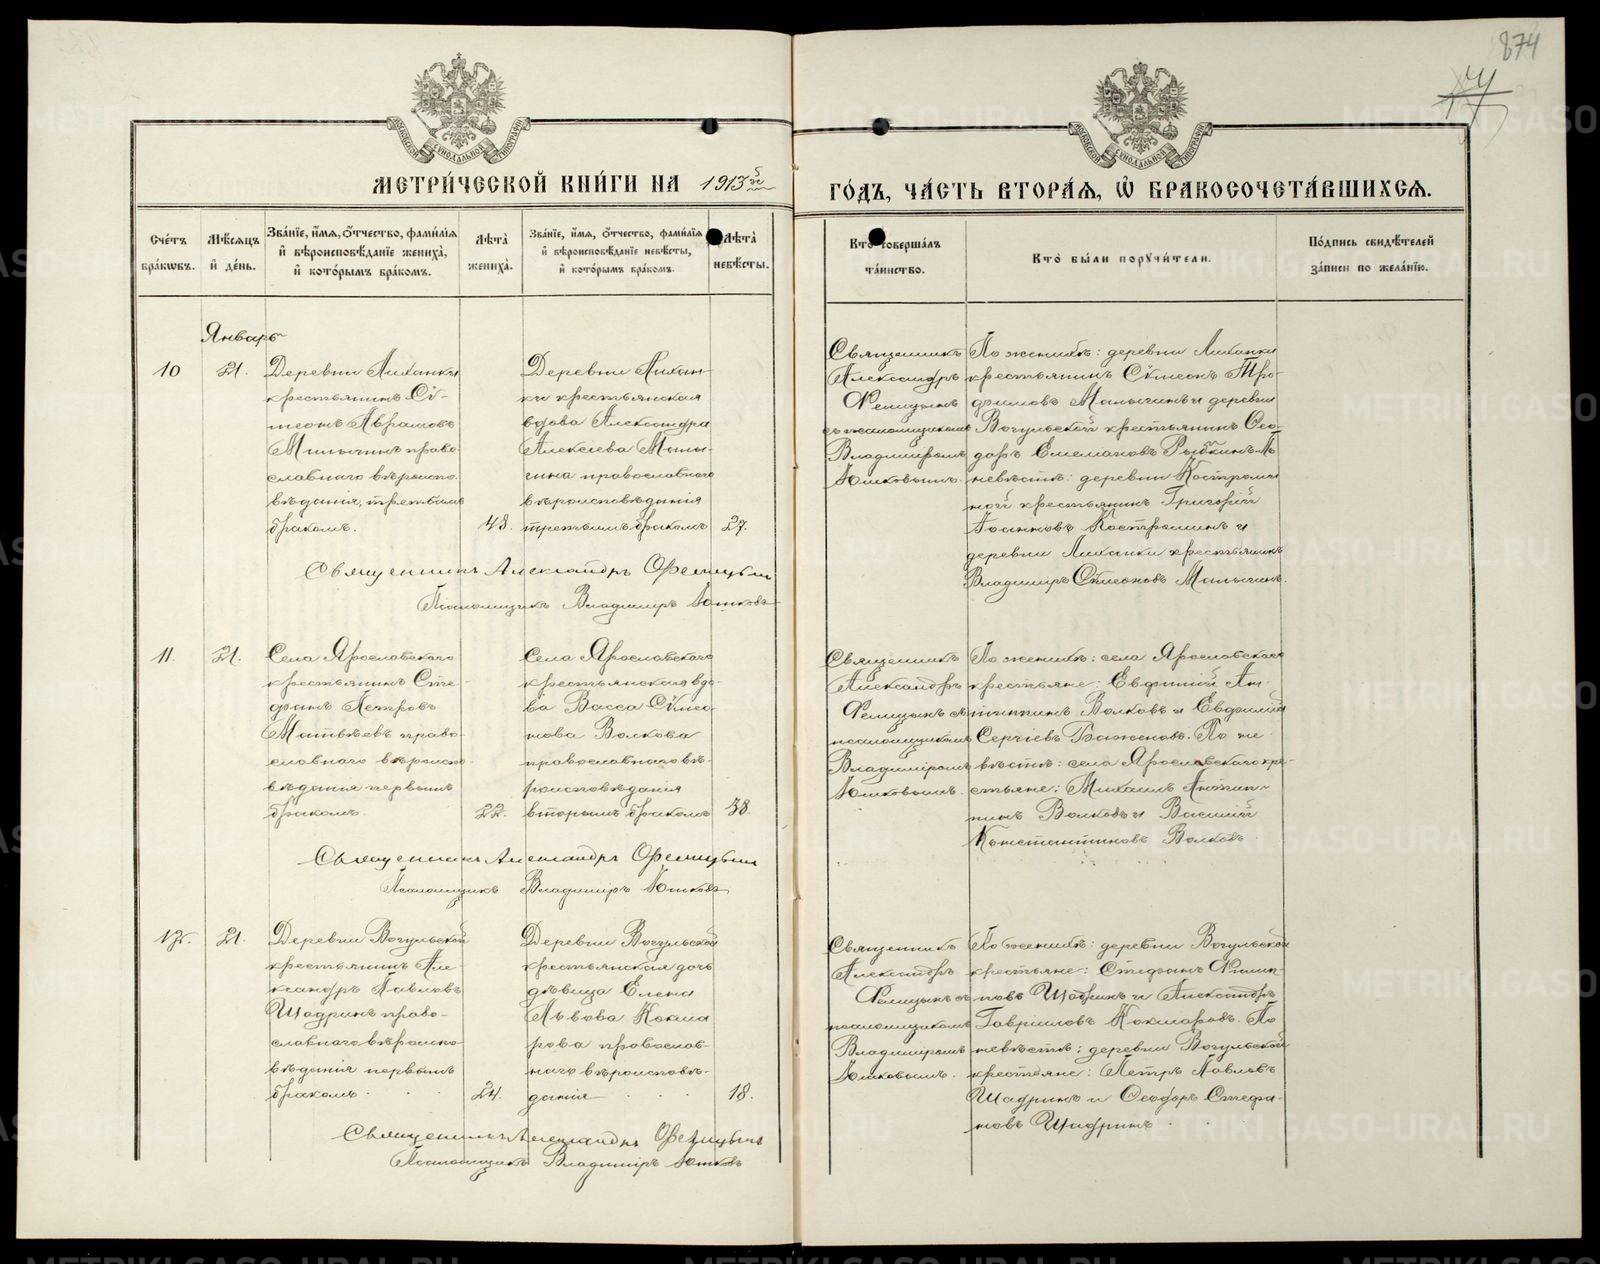 874
МОСКОВСКОЙ СѴНОДАЛЬНОЙ ТИПОГРАФІИ
МОСКОВСКОЙ СѴНОДАЛЬНОЙ ТИПОГРАФІИ
МЕТРИ́ЧЕСКОЙ КНИ́ГИ НА 1913й
ГО́ДЪ, ЧА́СТЬ ВТОРА́Ѧ, Ѽ БРАКОСОЧЕТА́ВШИХСѦ.
Сче́тъ бра́кѡвъ.
Мѣ́сяцъ и҆ де́нь.
Зва́нїе, и҆́мѧ, ѻ҆́тчество, фами́лїѧ и҆ вѣроисповѣ́данїе жениха̀, и҆ кото́рымъ бра́комъ.
Лѣ́та̀ жениха̀.
Зва́нїе, и҆́мѧ, ѻ҆́тчество, фами́лїѧ и҆ вѣроисповѣ́данїе невѣ́сты, и҆ кото́рымъ бра́комъ.
Лѣ́та̀ невѣ́сты.
Кто̀ соверша́лъ та́инство.
Кто̀ бы́ли поручи́тели.
По́дпись свидѣ́телей за́писи по жела́нїю.
Январь
10
21.
Деревни Лиханки
крестьянинъ Сѵ-
меонъ Аврамовъ
Малычинъ право-
славнаго вѣроиспо-
вѣданія, третьимъ
бракомъ.
48.
Деревни Лихан-
ки крестьянская
вдова Александра
Алексіева Малы-
гина православнаго
вѣроисповѣданія
третьимъ бракомъ
27.
Священникъ
Александръ
Фелицынъ
съ псаломщикомъ
Владиміромъ
Юшковымъ.
По женихѣ: деревни Лиханки
крестьянинъ Сѵмеонъ Тро-
фимовъ Малычинъ и деревни
Вогульской крестьянинъ Ѳео-
доръ Емеліановъ Рыбкинъ. По
невѣстѣ: деревни Костроми-
ной крестьянинъ Григорій
Іоанновъ Костроминъ и
деревни Лиханки крестьянинъ
Владиміръ Сѵмеоновъ Малычинъ.
Священникъ Александръ Фелицынъ
Псаломщикъ Владиміръ Юшковъ
11.
21.
Села Ярославскаго
крестьянинъ Сте-
фанъ Петровъ
Матвѣевъ право-
славнаго вѣроиспо-
вѣданія первымъ
бракомъ.
22.
Села Ярославскаго
крестьянская вдо-
ва Васса Сѵмео-
нова Волкова
православнаго вѣ-
роисповѣданія
вторымъ бракомъ
38.
Священникъ
Александръ
Фелицынъ съ
псаломщикомъ
Владиміромъ
Юшковымъ.
По женихѣ: села Ярославскаго
крестьяне: Евфимій Ан-
типинъ Волковъ и Евфимій
Сергіевъ Баженовъ. По не-
вѣстѣ: села Ярославскаго кре-
стьяне: Михаилъ Антип-
пинъ Волковъ и Василій
Константиновъ Волковъ.
Священникъ Александръ Фелицынъ
Псаломщикъ Владиміръ Юшковъ
12.
21.
Деревни Вогульской
крестьянинъ Але-
ксандръ Павловъ
Шадринъ право-
славнаго вѣроиспо-
вѣданія первымъ
бракомъ.
24.
Деревни Вогульской
крестьянская дочь
дѣвица Елена
Львова Кокша-
рова православ-
наго вѣроисповѣ-
данія
18.
Священникъ
Александръ
Фелицынъ съ
псаломщикомъ
Владиміромъ
Юшковымъ.
По женихѣ: деревни Вогульской
крестьяне: Стефанъ Филип-
повъ Шадринъ и Александръ
Гавріиловъ Кокшаровъ. По
невѣстѣ: деревни Вогульской
крестьяне: Петръ Павловъ
Шадринъ и Ѳеодоръ Стефа-
новъ Шадринъ
Священникъ Александръ Фелицынъ
Псаломщикъ Владиміръ Юшковъ
METRIKI.GASO-URAL.RU